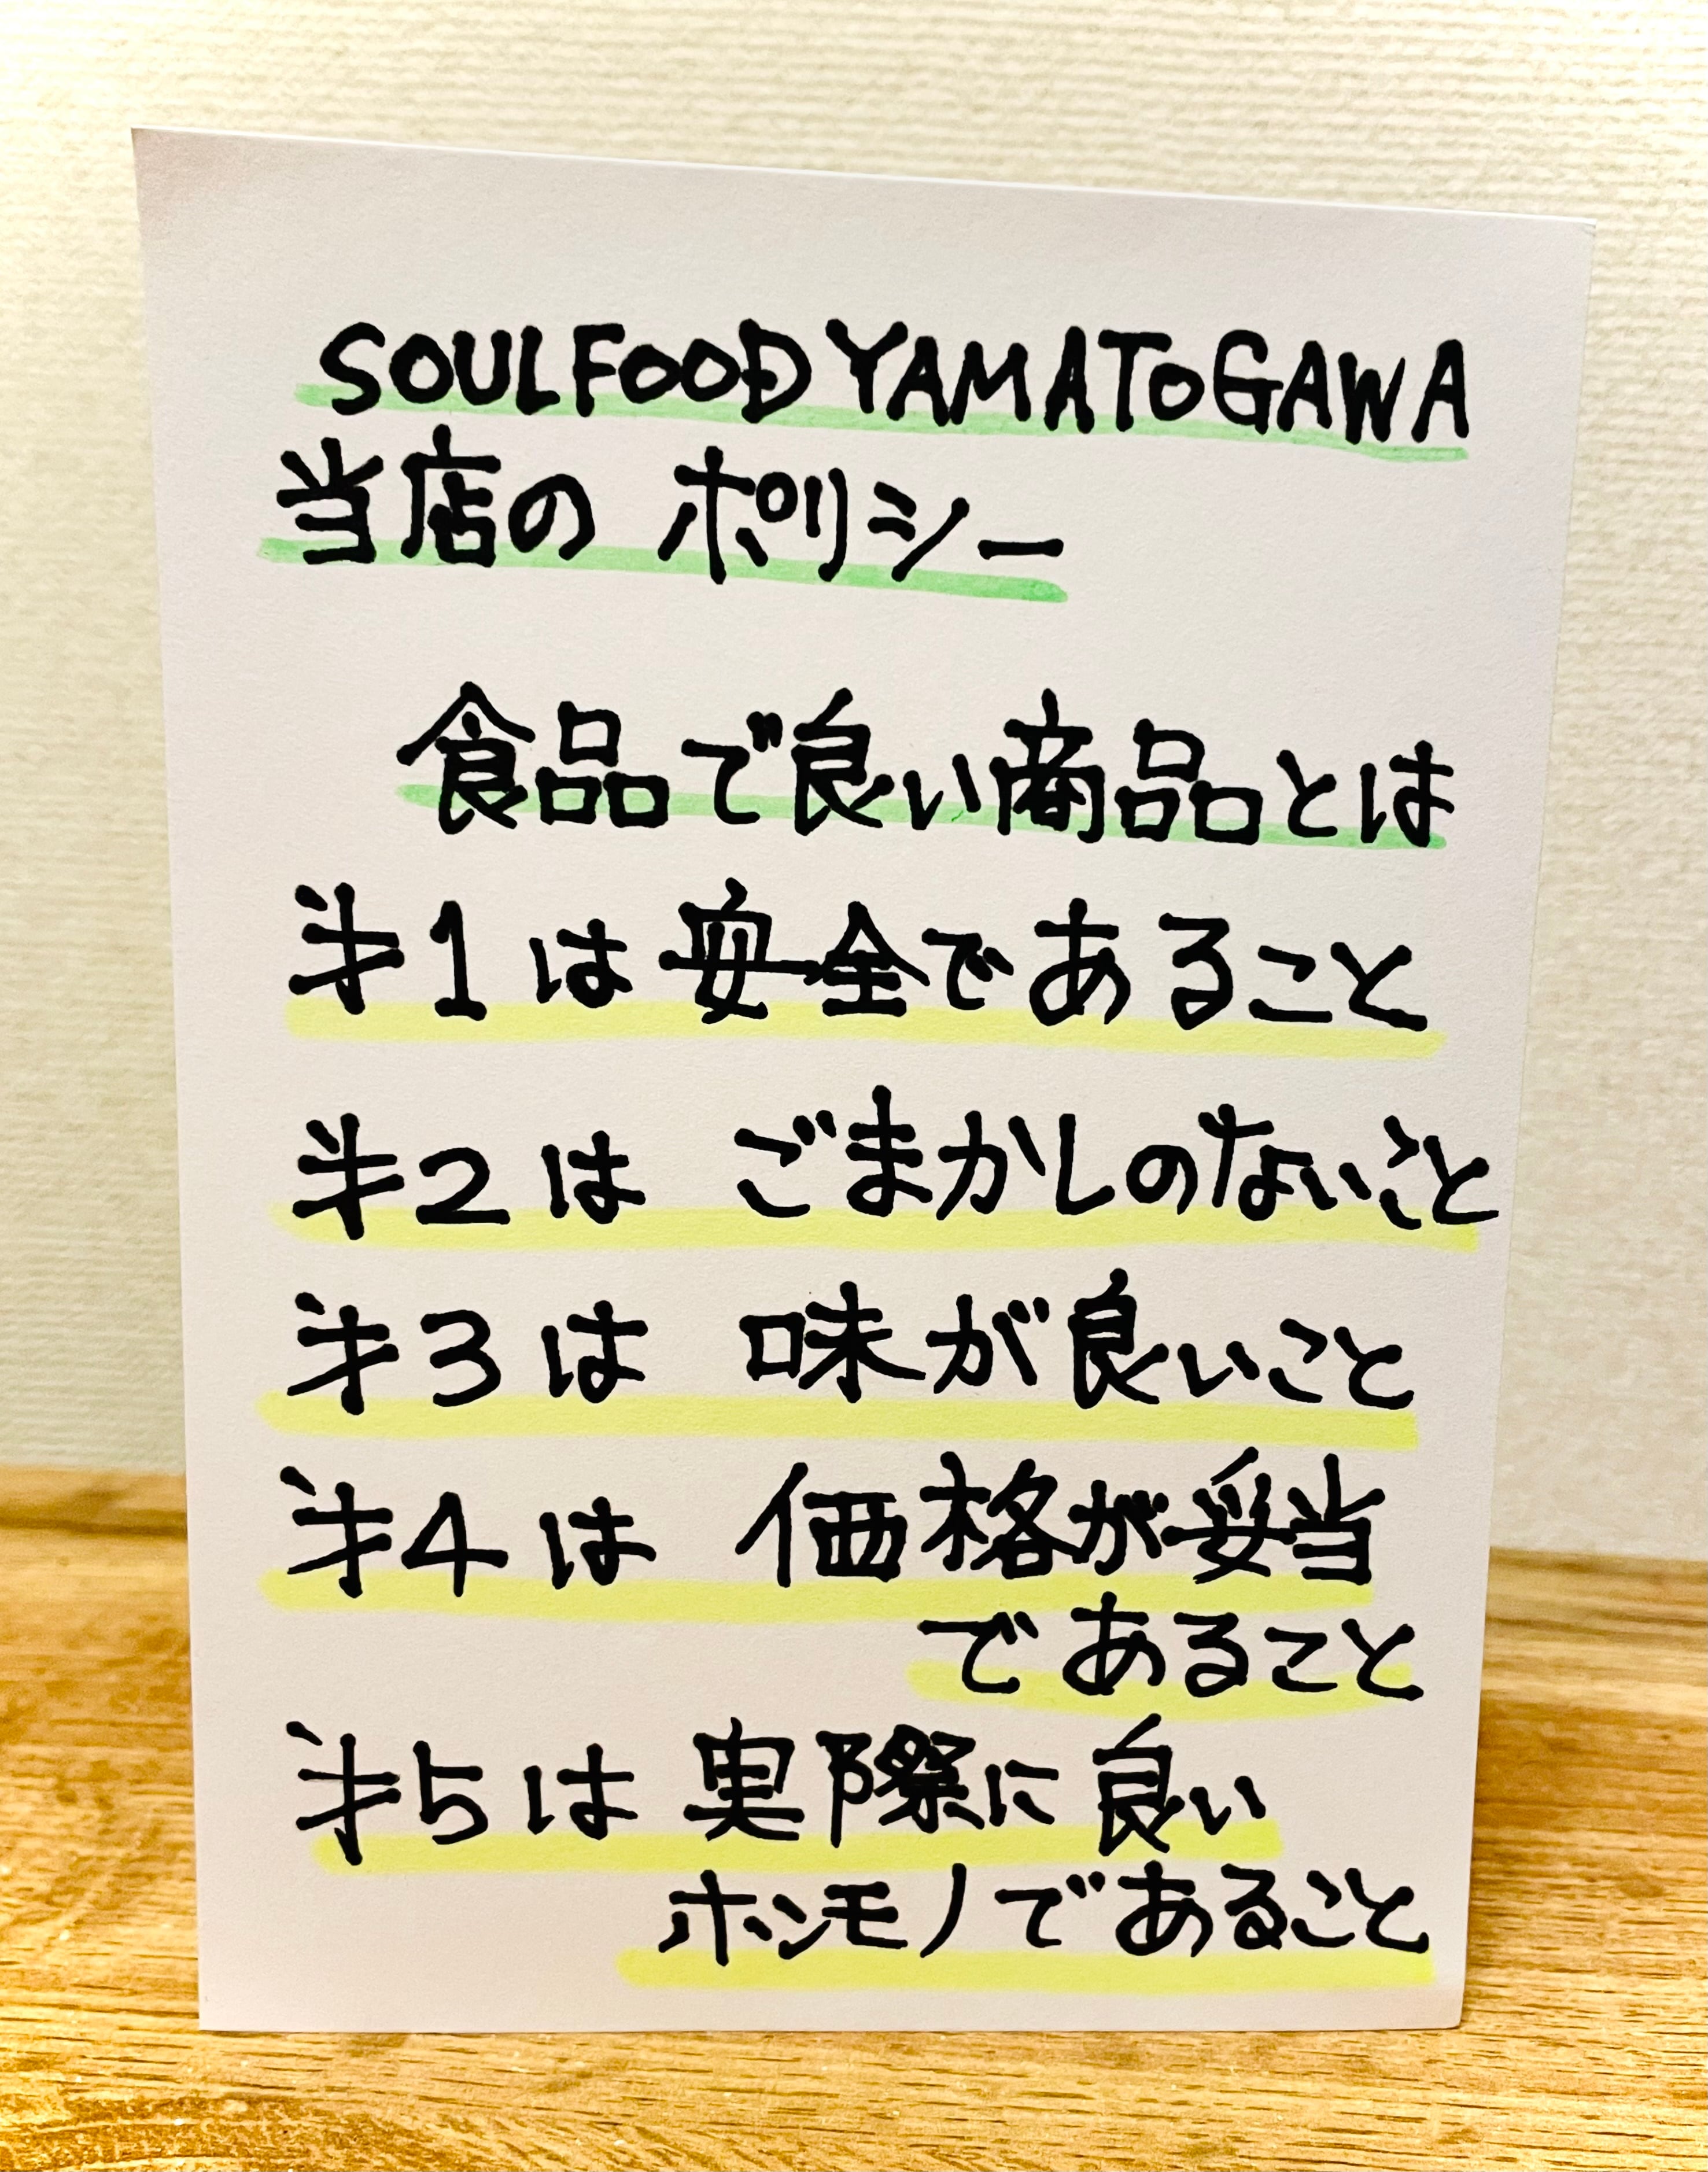 SOULFOOD YAMATOGAWA
当店の ポリシー
食品で良い商品とは
㐧1は安全であること
㐧2は ごまかしのないこと
㐧3は 味が良いこと
㐧4は 価格が妥当
であること
㐧5は 実際に良い
ホンモノであること